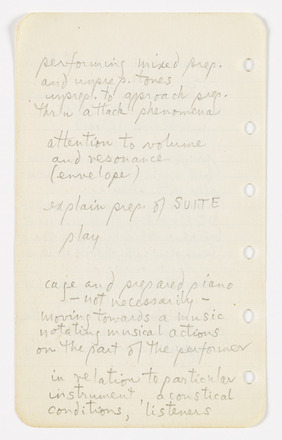 performing mixed prep.
and unprep. tones
unprep. to approach prep.
thru attack phenomena
attention to volume
and resonance
(envelope)
explain prep. of SUITE
play
cage and prepared piano
– not necessarily –
moving towards a music
notating musical actions
on the part of the performer
in relation to particular
instrument, acoustical
conditions, listeners